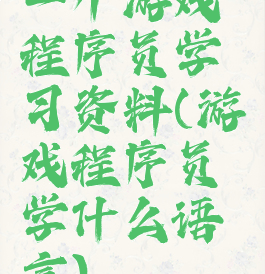 一个游戏
程序员学
习资料(游
戏程序员
学什么语
言)